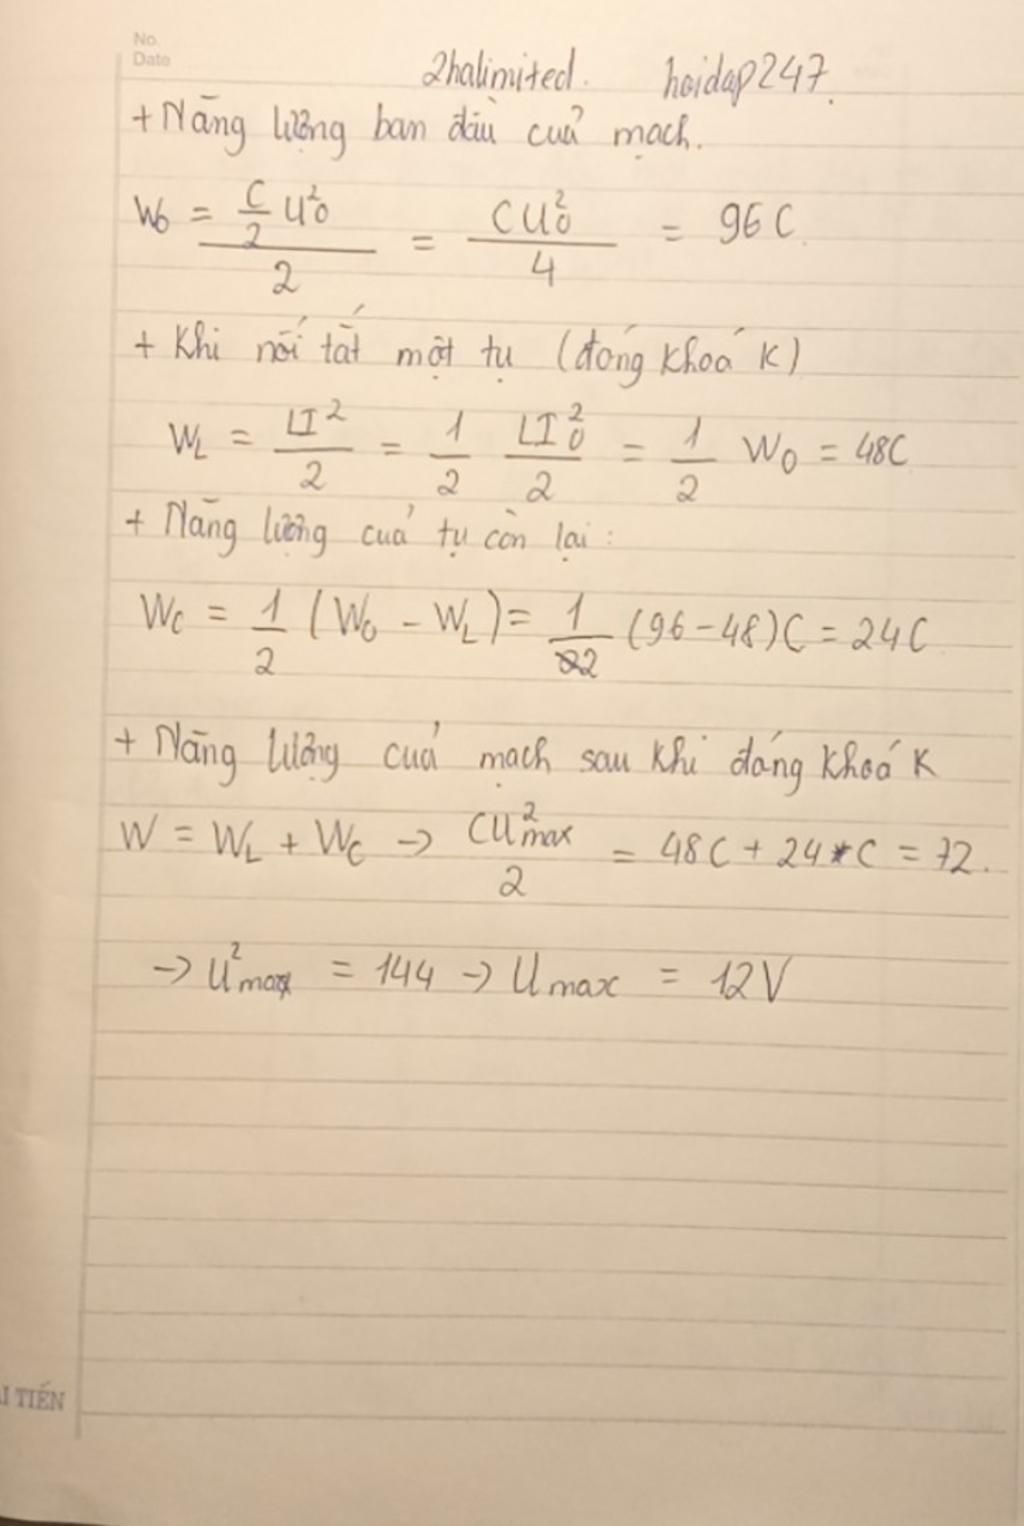 No.
Date
2halimited. hoidap247.
+ Năng lượng ban đầu của mạch.
W₀ = (C/2 U₀²)/2 = CU₀²/4 = 96C.
+ Khi nối tắt một tụ (đóng khoá K)
W_L = LI²/2 = 1/2 LI₀²/2 = 1/2 W₀ = 48C
+ Năng lượng của tụ còn lại:
W_C = 1/2 (W₀ - W_L) = 1/2 (96-48)C = 24C
+ Năng lượng của mạch sau khi đóng khoá K
W = W_L + W_C → CU²max/2 = 48C + 24C = 72.
→ U²max = 144 → Umax = 12V
I TIẾN